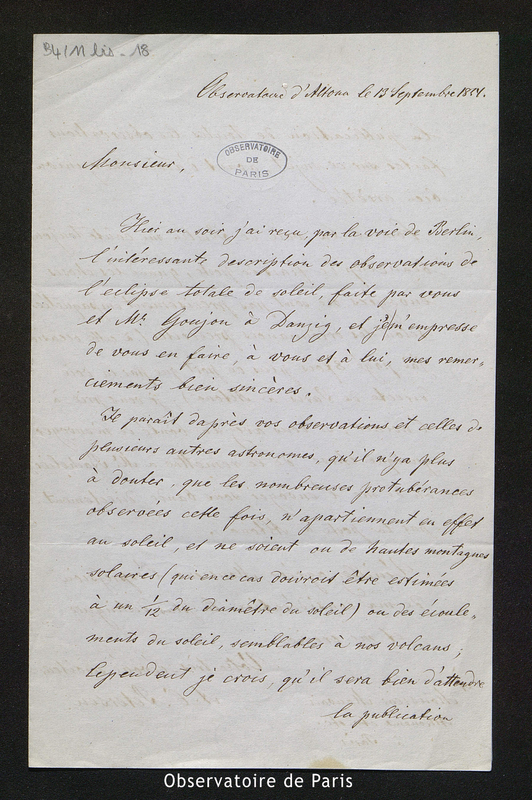 B4/11 bis - 18
Observatoire d'Altona le 13 Septembre 1851.
OBSERVATOIRE
DE
PARIS
Monsieur,
Hier au soir j'ai reçu, par la voie de Berlin,
l'intéressante description des observations de
l'eclipse totale de soleil, faite par vous
et Mr. Goujon à Danzig, et je m'empresse
de vous en faire, à vous et à lui, mes remer-
ciements bien sincères.
Il paraît daprès vos observations et celles de
plusieurs autres astronomes, qu'il n'ya plus
à douter, que les nombreuses protubérances
observées cette fois, n'apartiennent en effet
au soleil, et ne soient ou de hautes montagnes
solaires (qui en ce cas doivroit être estimées
à un 1/12 du diamêtre du soleil) ou des écoule-
ments du soleil, semblables à nos volcans;
Cependent je crois, qu'il sera bien d'attendre
la publication
Observatoire de Paris